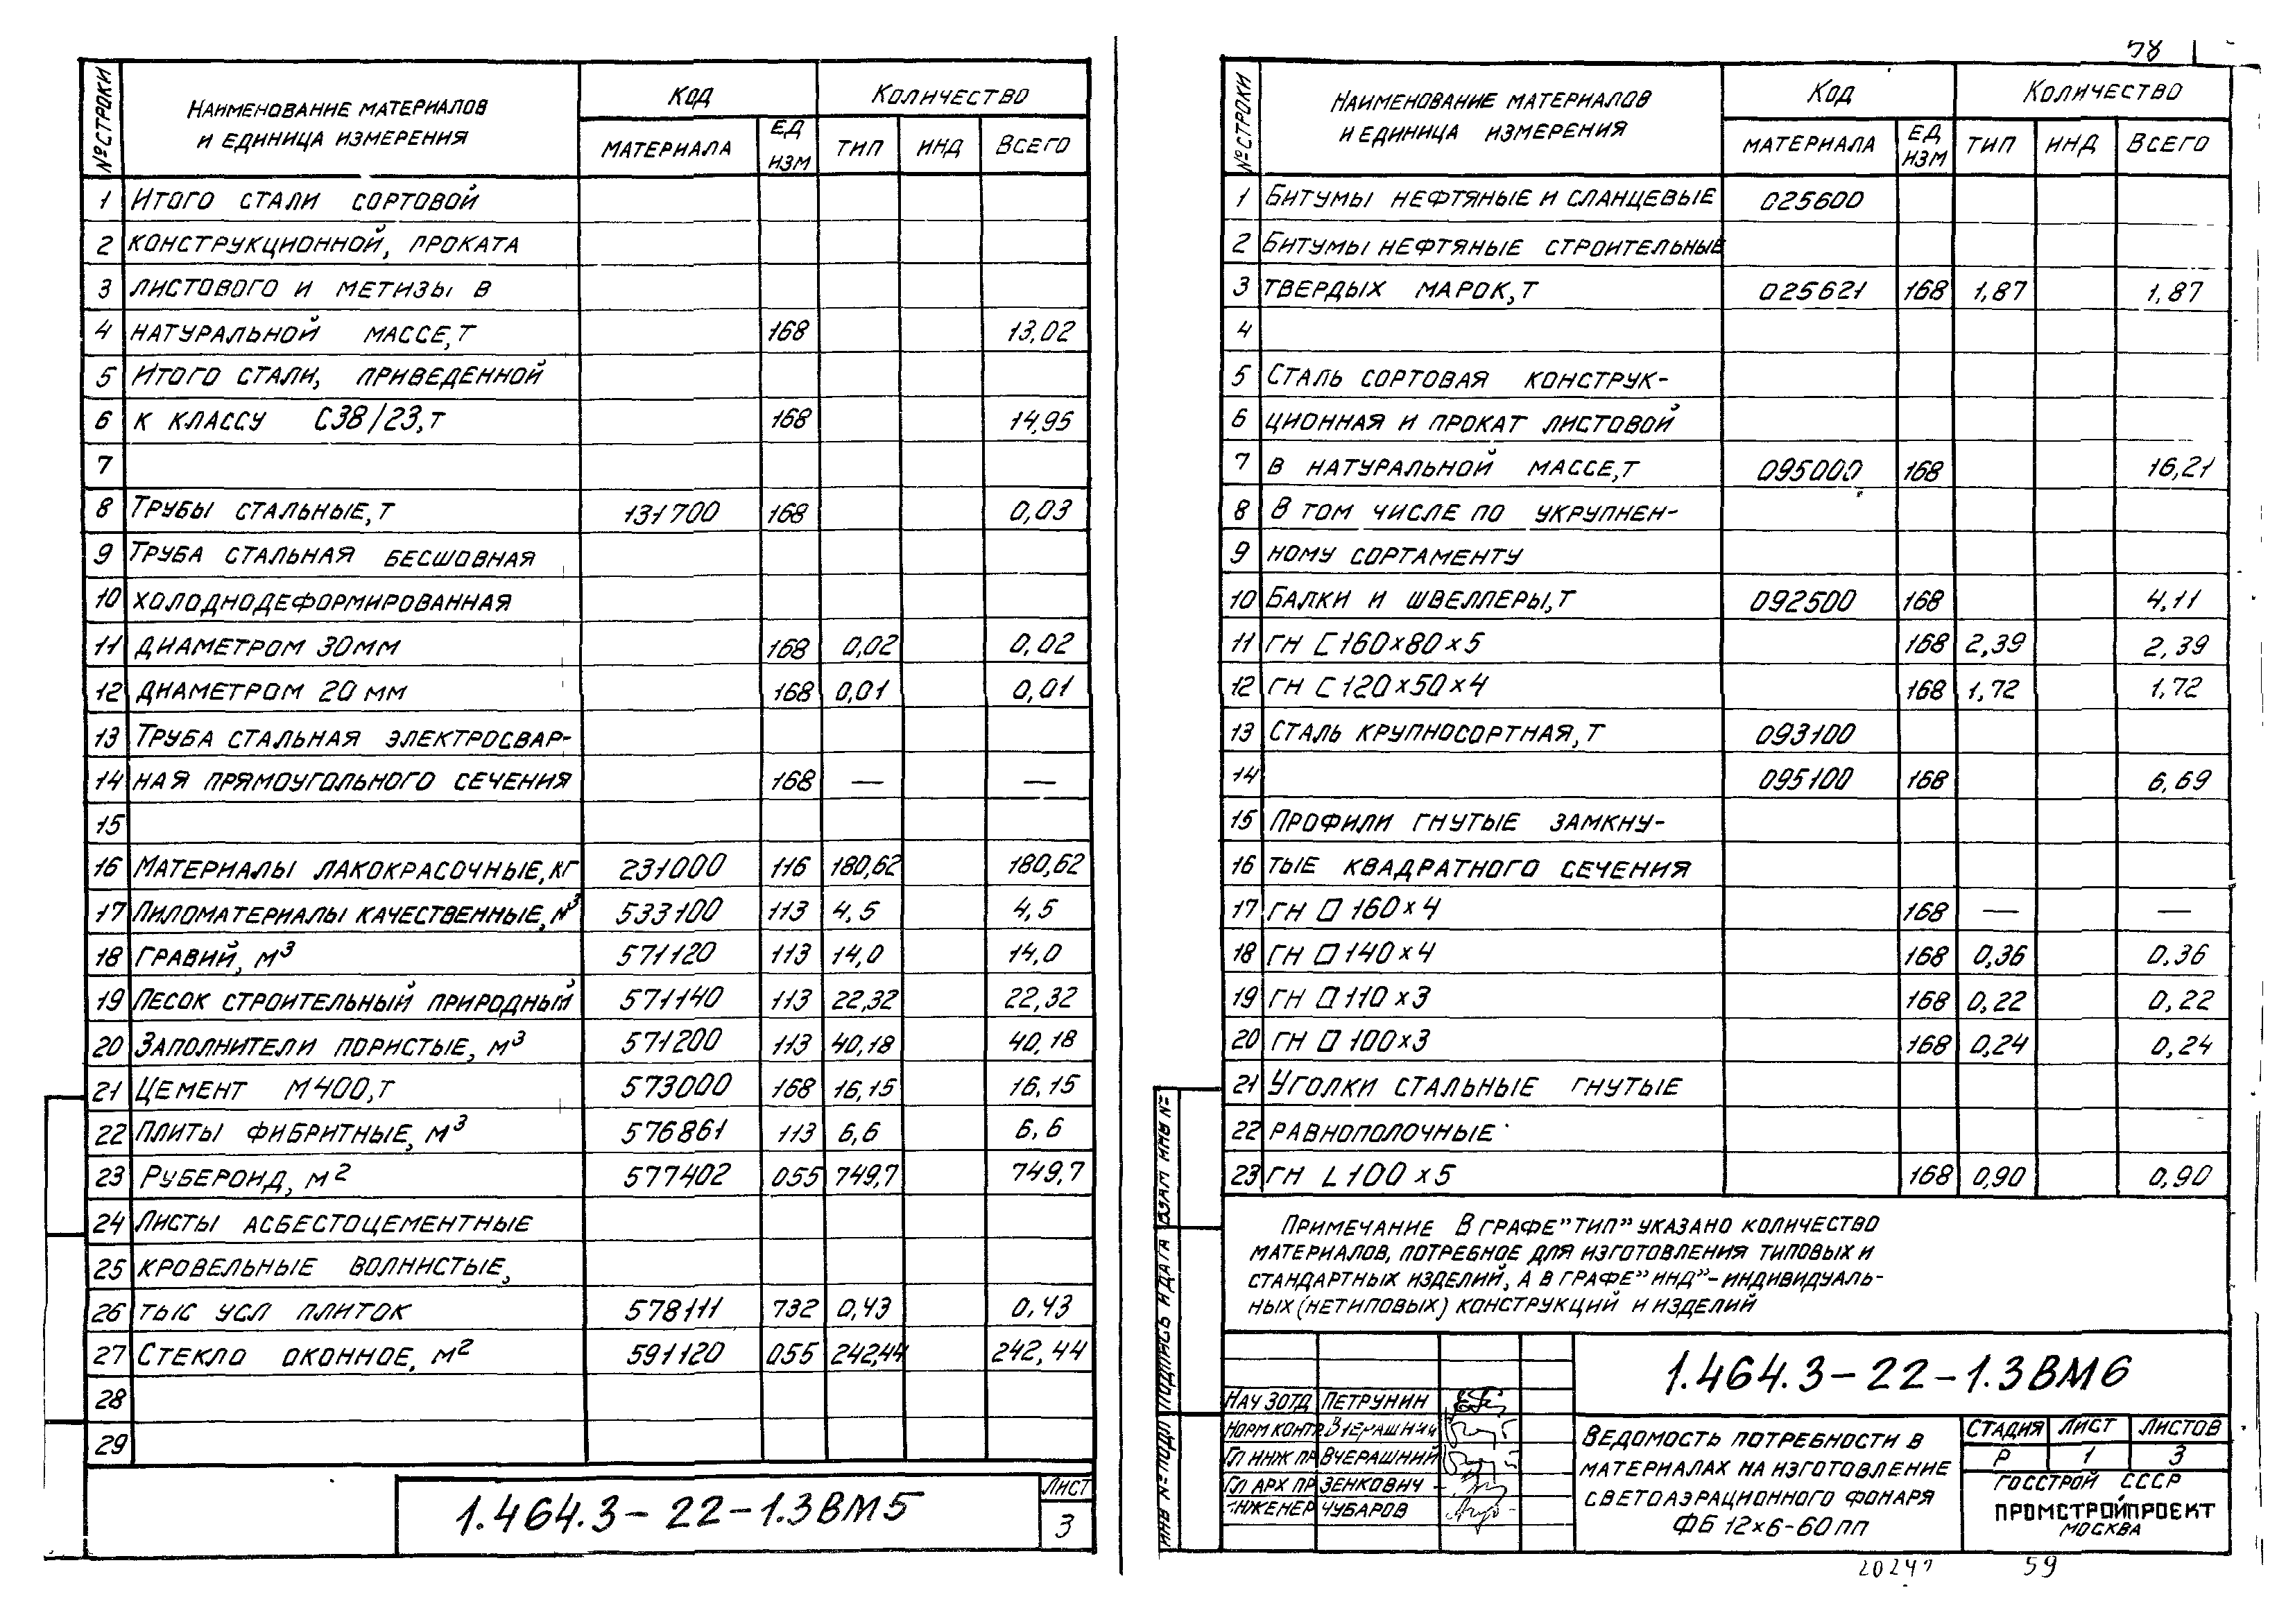 № СТРОКИ НАИМЕНОВАНИЕ МАТЕРИАЛОВ КОД КОЛИЧЕСТВО
И ЕДИНИЦА ИЗМЕРЕНИЯ МАТЕРИАЛА ЕД ИЗМ ТИП ИНД ВСЕГО
1 ИТОГО СТАЛИ СОРТОВОЙ
2 КОНСТРУКЦИОННОЙ, ПРОКАТА
3 ЛИСТОВОГО И МЕТИЗЫ В
4 НАТУРАЛЬНОЙ МАССЕ, Т 168 13,02
5 ИТОГО СТАЛИ, ПРИВЕДЕННОЙ
6 К КЛАССУ С38/23, Т 168 14,95
7
8 ТРУБЫ СТАЛЬНЫЕ, Т 131700 168 0,03
9 ТРУБА СТАЛЬНАЯ БЕСШОВНАЯ
10 ХОЛОДНОДЕФОРМИРОВАННАЯ
11 ДИАМЕТРОМ 30 ММ 168 0,02 0,02
12 ДИАМЕТРОМ 20 ММ 168 0,01 0,01
13 ТРУБА СТАЛЬНАЯ ЭЛЕКТРОСВАР-
14 НАЯ ПРЯМОУГОЛЬНОГО СЕЧЕНИЯ 168 — —
15
16 МАТЕРИАЛЫ ЛАКОКРАСОЧНЫЕ, КГ 231000 116 180,62 180,62
17 ПИЛОМАТЕРИАЛЫ КАЧЕСТВЕННЫЕ, М³ 533100 113 4,5 4,5
18 ГРАВИЙ, М³ 571120 113 14,0 14,0
19 ПЕСОК СТРОИТЕЛЬНЫЙ ПРИРОДНЫЙ 571140 113 22,32 22,32
20 ЗАПОЛНИТЕЛИ ПОРИСТЫЕ, М³ 571200 113 40,18 40,18
21 ЦЕМЕНТ М400, Т 573000 168 16,15 16,15
22 ПЛИТЫ ФИБРИТНЫЕ, М³ 576861 113 6,6 6,6
23 РУБЕРОИД, М² 577402 055 749,7 749,7
24 ЛИСТЫ АСБЕСТОЦЕМЕНТНЫЕ
25 КРОВЕЛЬНЫЕ ВОЛНИСТЫЕ,
26 ТЫС УСЛ ПЛИТОК 578111 732 0,43 0,43
27 СТЕКЛО ОКОННОЕ, М² 591120 055 242,44 242,44
28
29
1.464.3-22-1.3ВМ5 ЛИСТ 3
58
№ СТРОКИ НАИМЕНОВАНИЕ МАТЕРИАЛОВ КОД КОЛИЧЕСТВО
И ЕДИНИЦА ИЗМЕРЕНИЯ МАТЕРИАЛА ЕД ИЗМ ТИП ИНД ВСЕГО
1 БИТУМЫ НЕФТЯНЫЕ И СЛАНЦЕВЫЕ 025600
2 БИТУМЫ НЕФТЯНЫЕ СТРОИТЕЛЬНЫЕ
3 ТВЕРДЫХ МАРОК, Т 025621 168 1,87 1,87
4
5 СТАЛЬ СОРТОВАЯ КОНСТРУК-
6 ЦИОННАЯ И ПРОКАТ ЛИСТОВОЙ
7 В НАТУРАЛЬНОЙ МАССЕ, Т 095000 168 16,21
8 В ТОМ ЧИСЛЕ ПО УКРУПНЕН-
9 НОМУ СОРТАМЕНТУ
10 БАЛКИ И ШВЕЛЛЕРЫ, Т 092500 168 4,11
11 ГН [160×80×5 168 2,39 2,39
12 ГН [120×50×4 168 1,72 1,72
13 СТАЛЬ КРУПНОСОРТНАЯ, Т 093100
14 095100 168 6,69
15 ПРОФИЛИ ГНУТЫЕ ЗАМКНУ-
16 ТЫЕ КВАДРАТНОГО СЕЧЕНИЯ
17 ГН □ 160×4 168 — —
18 ГН □ 140×4 168 0,36 0,36
19 ГН □ 110×3 168 0,22 0,22
20 ГН □ 100×3 168 0,24 0,24
21 УГОЛКИ СТАЛЬНЫЕ ГНУТЫЕ
22 РАВНОПОЛОЧНЫЕ
23 ГН L 100×5 168 0,90 0,90
ПРИМЕЧАНИЕ В ГРАФЕ "ТИП" УКАЗАНО КОЛИЧЕСТВО
МАТЕРИАЛОВ, ПОТРЕБНОЕ ДЛЯ ИЗГОТОВЛЕНИЯ ТИПОВЫХ И
СТАНДАРТНЫХ ИЗДЕЛИЙ, А В ГРАФЕ "ИНД"-ИНДИВИДУАЛЬ-
НЫХ (НЕТИПОВЫХ) КОНСТРУКЦИЙ И ИЗДЕЛИЙ
ИНВ № ПОДЛ ПОДПИСЬ И ДАТА ВЗАМ ИНВ №
1.464.3-22-1.3ВМ6
НАЧ ЗОТД ПЕТРУНИН
НОРМ КОНТР ВЧЕРАШНИЙ
ГЛ ИНЖ ПР ВЧЕРАШНИЙ
ГЛ АРХ ПР ЗЕНКОВИЧ
ИНЖЕНЕР ЧУБАРОВ
ВЕДОМОСТЬ ПОТРЕБНОСТИ В
МАТЕРИАЛАХ НА ИЗГОТОВЛЕНИЕ
СВЕТОАЭРАЦИОННОГО ФОНАРЯ
ФБ 12×6-60ПП
СТАДИЯ ЛИСТ ЛИСТОВ
Р 1 3
ГОССТРОЙ СССР
ПРОМСТРОЙПРОЕКТ
МОСКВА
59